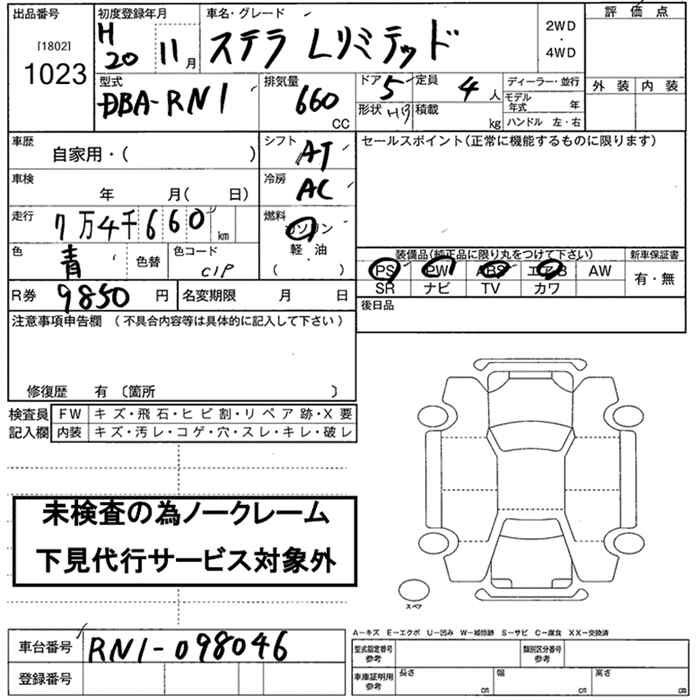 出品番号 初度登録年月 車名・グレード 評価点
[1802] 1023 H20 11月 ステラ Lリミテッド 2WD・4WD
型式 排気量 ドア 5 定員 4人 ディーラー・並行 外装 内装
DBA-RN1 660 CC 形状 HB 積載 kg モデル年式 年
ハンドル 左・右
車歴 自家用・( ) シフト AT セールスポイント(正常に機能するものに限ります)
車検 年 月( 日) 冷房 AC
走行 7万4千660km 燃料 ガソリン
軽・油
( )
色 青 色替 色コード C1P 装備品(純正品に限り丸をつけて下さい) 新車保証書
PS PW ABS エアB AW 有・無
SR ナビ TV カワ
R券 9850円 名変期限 月 日 後日品
注意事項申告欄 (不具合内容等は具体的に記入して下さい)
修復歴 有 〔箇所 〕
検査員 FW キズ・飛石・ヒビ割・リペア跡・X要
記入欄 内装 キズ・汚レ・コゲ・穴・スレ・キレ・破レ
未検査の為ノークレーム
下見代行サービス対象外
スペア
A-キズ E-エクボ U-凹み W-補修跡 S-サビ C-腐食 XX-交換済
車台番号 RN1-098046 型式指定番号 参考 類別区分番号 参考
登録番号 車庫証明用 参考 長さ cm 幅 cm 高さ cm